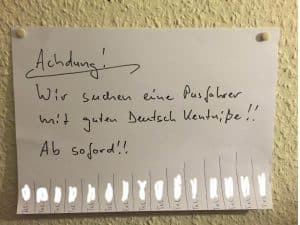 Achdung!
Wir suchen eine Pusfahrer
mit guten Deutsch Kentniße!!
Ab soford!!